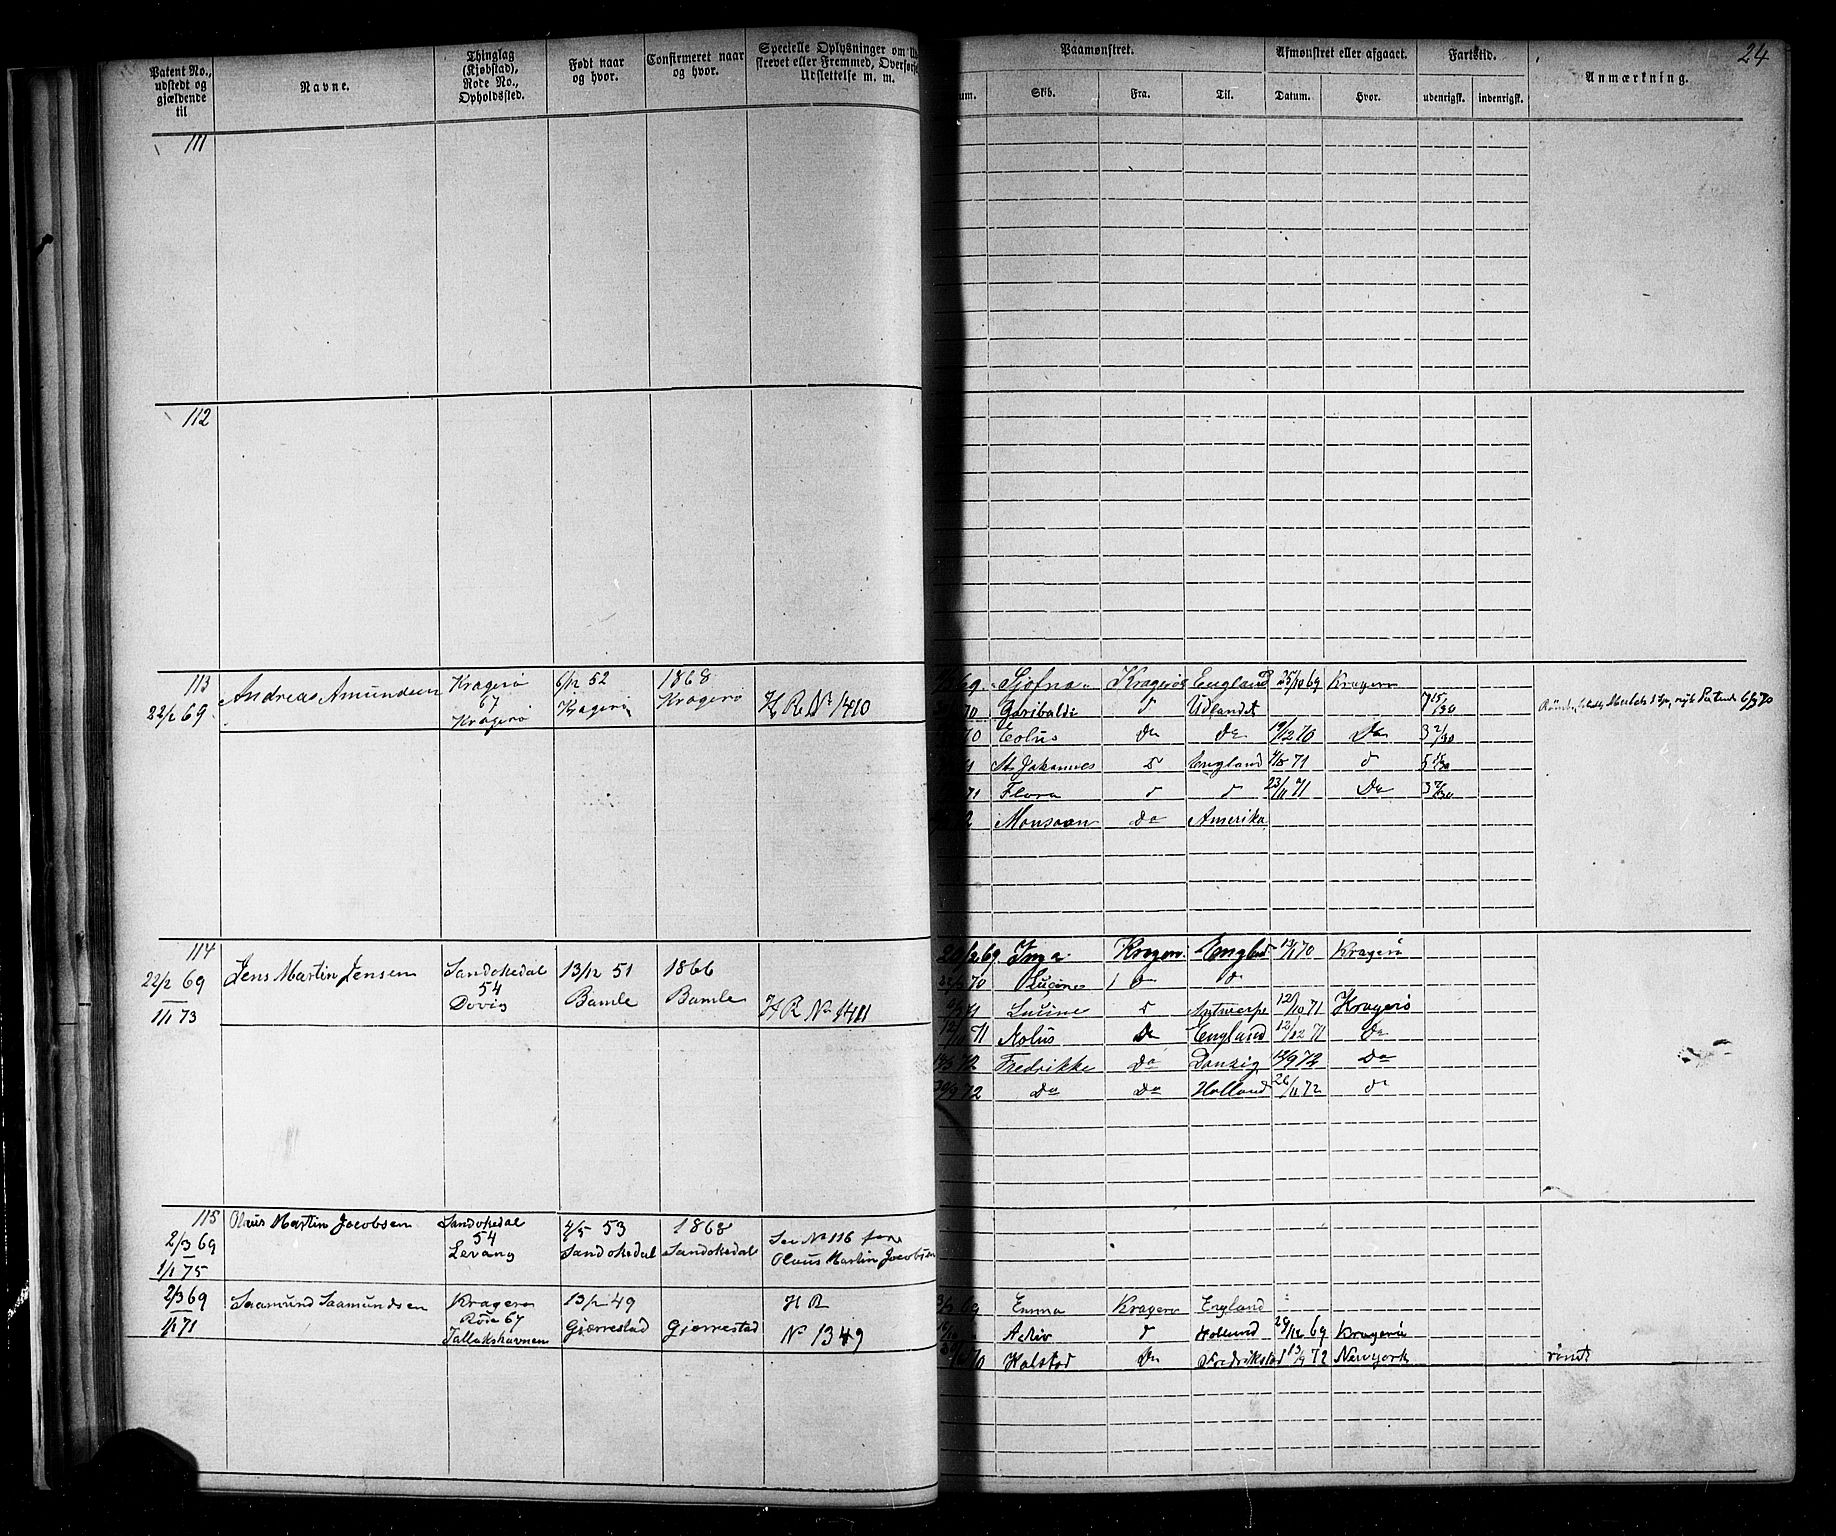 24
Patent No., udstedt og gjældende til
Navne.
Thinglag (Kjøbstad), Rode No., Opholdssted.
Født naar og hvor.
Confirmeret naar og hvor.
Specielle Oplysninger om
strevet eller Fremmed, Overførse
Udslettelse m. m.
Paamønstret.
Skib.
Fra.
Til.
Afmønstret eller afgaaet.
Datum.
Hvor.
Fartstid.
udenrigsk.
indenrigsk.
Anmærkning.
111
112
113
22/2 69
Andreas Amundsen
Kragerø
67
Kragerø
6/12 52
Kragerø
1868
Kragerø
H R No 1410
69 Sjofna Kragerø England 25/10 69 Kragerø
70 Garibaldi d Udlandet 7 15/30
70 Eolus Do Do 19/12 70 Do 3 2/30
71 St Johannes d England 71 d
71 Flora d d 23/11 71 Do
72 Monsoon Do Amerika
114
22/2 69
1/1 73
Jens Martin Jensen
Sandøkedal
54
Dovig
13/12 51
Bamle
1866
Bamle
H R No 1411
69 Inga Kragerø England 70 Kragerø
70 d d
71 Lucine d Antwerpe 12/10 71 Kragerø
12/10 71 Æolus Do England 12/12 71 Do
72 Fredrikke Do Danzig 12/9 72 Do
20/9 72 Do Do Holland 26/11 72 d
115
2/3 69
1/1 75
Olaus Martin Jacobsen
Sandøkedal
54
Levang
4/5 53
Sandøkedal
1868
Sandøkedal
See No 116 for
Olaus Martin Jacobsen
2/3 69
1/1 71
Saamund Saamundsen
Kragerø
Rode 67
Tallakshavnen
13/2 49
Gjerrestad
Gjerrestad
H R
No 1349
3/3 69 Emma Kragerø England
Activ d Holland 29/12 69 Kragerø
70 Halstad Do Fredrikstad 13/9 72 Newyork rømt